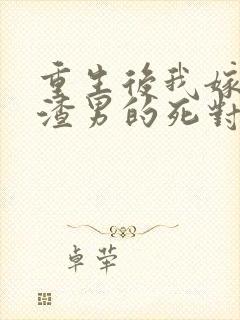 重生後我嫁
渣男的死對
卓犖